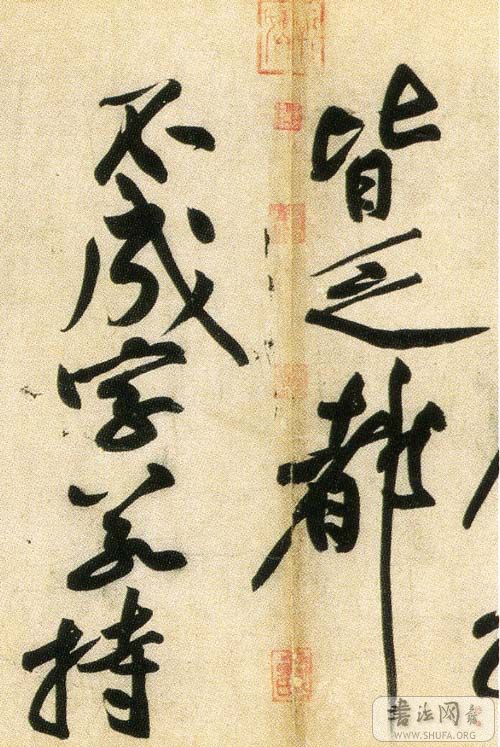 皆乏都
不成字若持
書法网
WWW.SHUFA.ORG